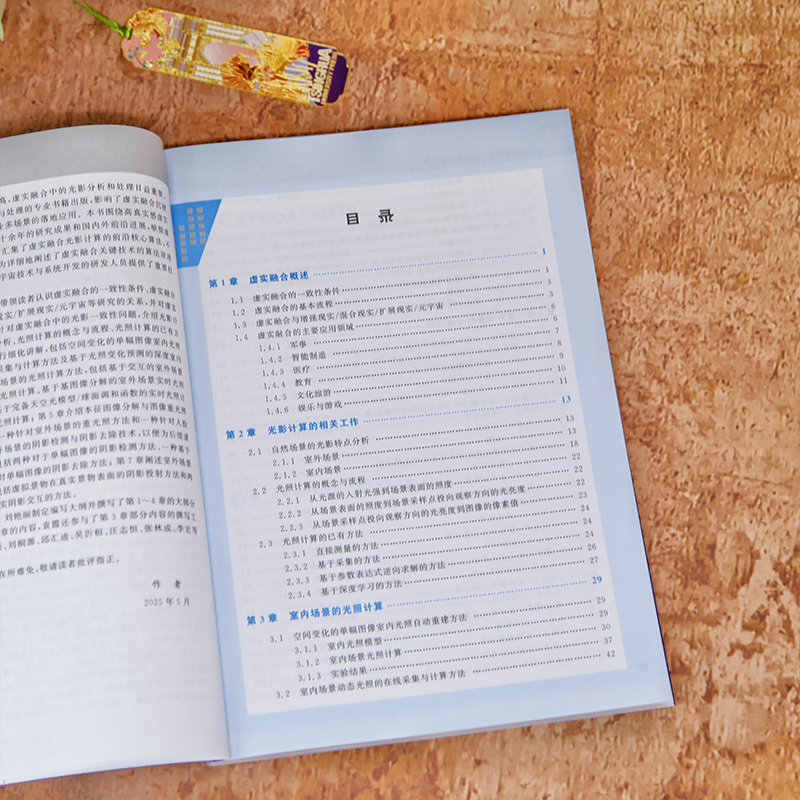 高，虚实融合中的光影分析和处理日益重要
与处理的专业书籍出版，影响了虚实融合沉浸
业多场景的落地应用。本书围绕高真实感虚实
十余年的研究成果和国内外前沿进展，根据虚
汇集了虚实融合光影计算的前沿核心算法，不
为详细地阐述了虚实融合关键技术的算法原理
宇宙技术与系统开发的研发人员提供了重要
带领读者认识虚实融合的一致性条件、虚实融合
现实/扩展现实/元宇宙等研究的关系，并对虚实
针对虚实融合中的光影一致性问题，介绍光影
分析、光照计算的概念与流程、光照计算的已有方
行细化讲解，包括空间变化的单幅图像室内光照
采集与计算方法及基于光照变化预测的深度室内
场景的光照计算方法，包括基于交互的室外场景
光照计算、基于基图像分解的室外场景实时光照
基于完备天空光模型/球面调和函数的实时光照计
光照计算；第5章介绍本征图像分解与图像重光照
一种针对室外场景的重光照方法和一种针对人脸
外场景的阴影检测与阴影去除技术，以便为后续虚
包括两种对于单幅图像的阴影检测方法、一种基于
对单幅图像的阴影去除方法；第7章阐述室外场景
包括虚拟景物在真实景物表面的阴影投射方法和两
实阴影交互的方法。
刘艳丽制定编写大纲并撰写了第1～4章的大部分
章的内容，袁霞还参与了第3章部分内容的撰写工
刘桐源、邱汇迪、吴沂桓、汪志恒、张林成、李宏等
在所难免，敬请读者批评指正。
作 者
2025年5月
TSINGHUA
目 录
第1章 虚实融合概述 1
1.1 虚实融合的一致性条件 1
1.2 虚实融合的基本流程 3
1.3 虚实融合与增强现实/混合现实/扩展现实/元宇宙 3
1.4 虚实融合的主要应用领域 6
1.4.1 军事 6
1.4.2 智能制造 7
1.4.3 医疗 8
1.4.4 教育 9
1.4.5 文化旅游 10
1.4.6 娱乐与游戏 11
第2章 光影计算的相关工作 13
2.1 自然场景的光影特点分析 13
2.1.1 室外场景 13
2.1.2 室内场景 18
2.2 光照计算的概念与流程 22
2.2.1 从光源的入射光强到场景表面的照度 22
2.2.2 从场景表面的照度到场景采样点投向观察方向的光亮度 22
2.2.3 从场景采样点投向观察方向的光亮度到图像的像素值 23
2.3 光照计算的已有方法 24
2.3.1 直接测量的方法 24
2.3.2 基于采集的方法 24
2.3.3 基于参数表达式逆向求解的方法 26
2.3.4 基于深度学习的方法 27
第3章 室内场景的光照计算 29
3.1 空间变化的单幅图像室内光照自动重建方法 29
3.1.1 室内光照模型 29
3.1.2 室内场景光照计算 30
3.1.3 实验结果 37
3.2 室内场景动态光照的在线采集与计算方法 42